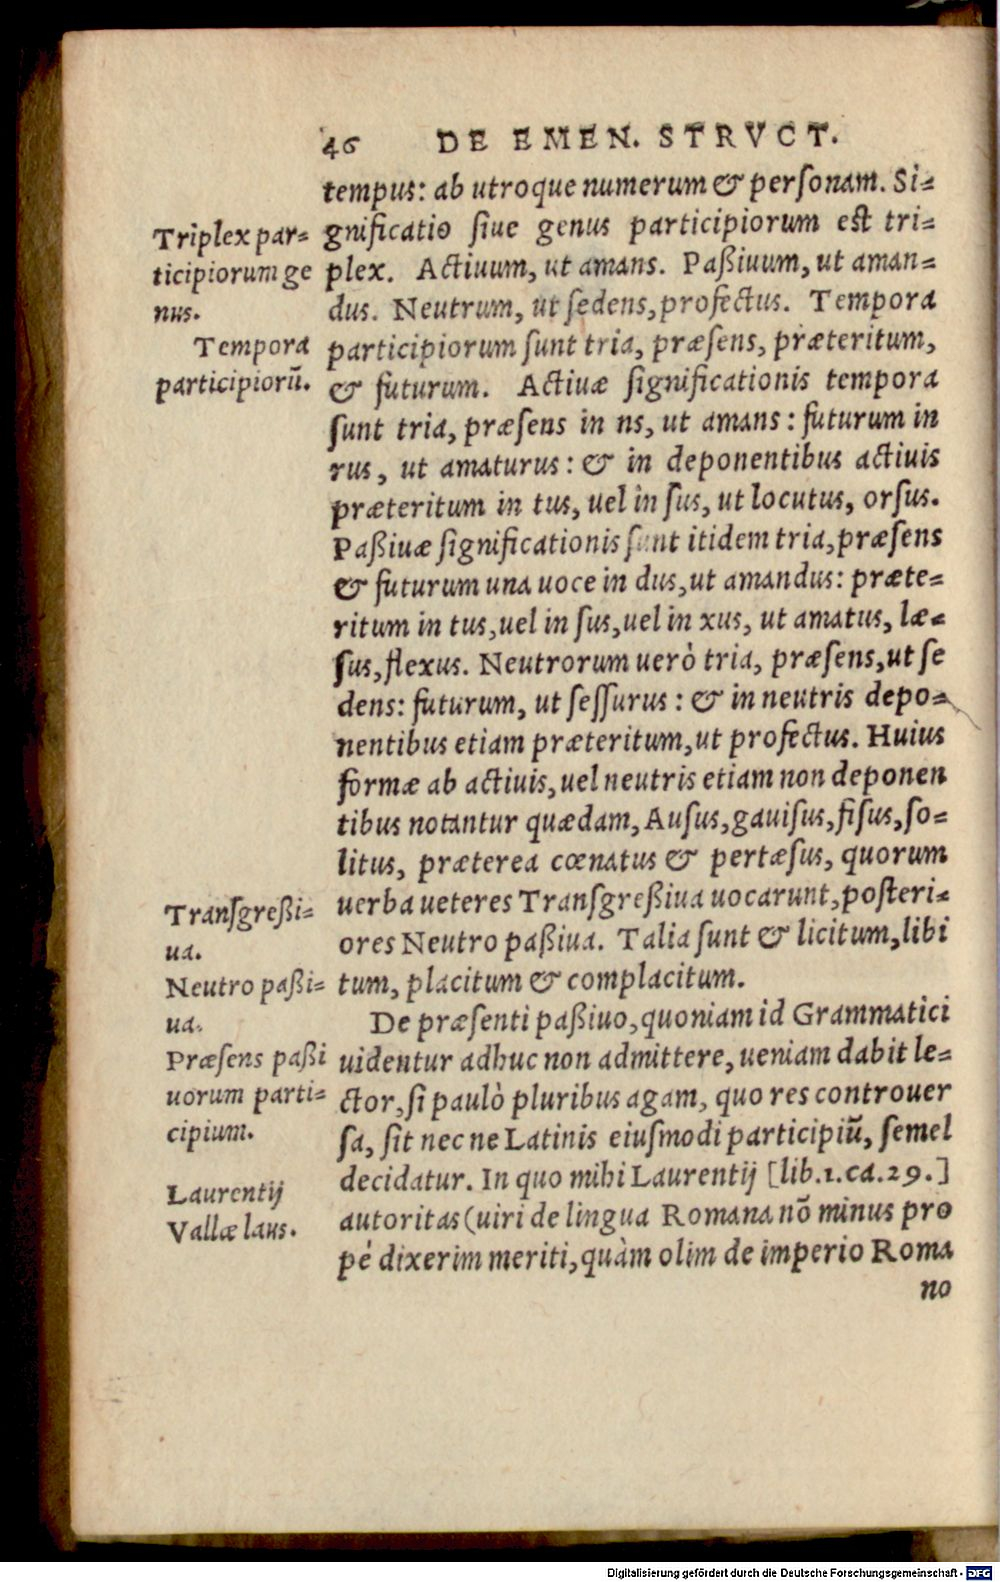 46 DE EMEN. STRVCT.
tempus: ab utroque numerum & personam. Si=
gnificatio siue genus participiorum est tri=
plex. Actiuum, ut amans. Paßiuum, ut aman=
dus. Neutrum, ut sedens, profectus. Tempora
participiorum sunt tria, præsens, præteritum,
& futurum. Actiuæ significationis tempora
sunt tria, præsens in ns, ut amans: futurum in
rus, ut amaturus: & in deponentibus actiuis
præteritum in tus, uel in sus, ut locutus, orsus.
Paßiuæ significationis sunt itidem tria, præsens
& futurum una uoce in dus, ut amandus: præte=
ritum in tus, uel in sus, uel in xus, ut amatus, læ=
sus, flexus. Neutrorum uerò tria, præsens, ut se
dens: futurum, ut sessurus: & in neutris depo=
nentibus etiam præteritum, ut profectus. Huius
formæ ab actiuis, uel neutris etiam non deponen
tibus notantur quædam, Ausus, gauisus, fisus, so=
litus, præterea cœnatus & pertæsus, quorum
uerba ueteres Transgreßiua uocarunt, posteri=
ores Neutro paßiua. Talia sunt & licitum, libi
tum, placitum & complacitum.
De præsenti paßiuo, quoniam id Grammatici
uidentur adhuc non admittere, ueniam dabit le=
ctor, si paulò pluribus agam, quo res controuer
sa, sit nec ne Latinis eiusmodi participiũ, semel
decidatur. In quo mihi Laurentij [lib.1.ca.29.]
autoritas (uiri de lingua Romana nõ minus pro
pé dixerim meriti, quàm olim de imperio Roma
no
Triplex par=
ticipiorum ge
nus.
Tempora
participiorũ.
Transgreßi=
ua.
Neutro paßi=
ua.
Præsens paßi
uorum parti=
cipium.
Laurentij
Vallæ laus.
Digitalisierung gefördert durch die Deutsche Forschungsgemeinschaft - DFG